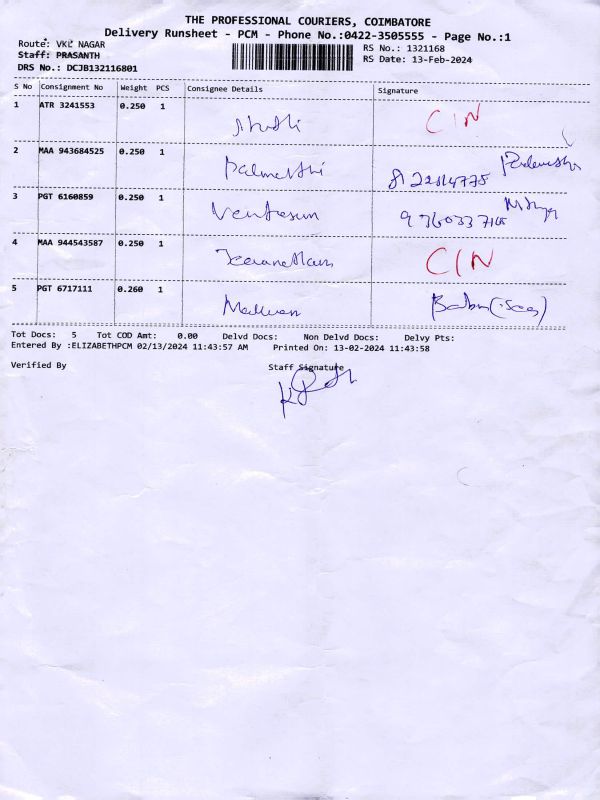 THE PROFESSIONAL COURIERS, COIMBATORE
Delivery Runsheet - PCM - Phone No.:0422-3505555 - Page No.:1
Route: VKL NAGAR RS No.: 1321168
Staff: PRASANTH RS Date: 13-Feb-2024
DRS No.: DCJB132116801
S No Consignment No Weight PCS Consignee Details Signature
1 ATR 3241553 0.250 1 C/N
2 MAA 943684525 0.250 1
3 PGT 6160859 0.250 1
4 MAA 944543587 0.250 1 C/N
5 PGT 6717111 0.260 1
Tot Docs: 5 Tot COD Amt: 0.00 Delvd Docs: Non Delvd Docs: Delvy Pts:
Entered By :ELIZABETHPCM 02/13/2024 11:43:57 AM Printed On: 13-02-2024 11:43:58
Verified By Staff Signature